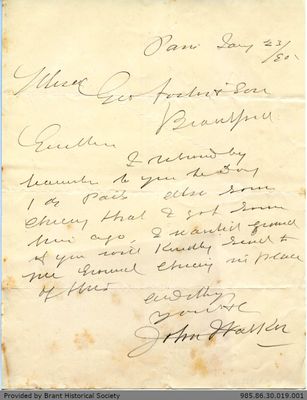 Paris Jany 23/80.
Messrs
Geo Foster & Son
Brantford
Gentlemen
I return by
to you to Day
1 Pail also Som
Chicory that I got Som
time ago, I wanted ground
if you will Kindly Send to
me Ground Chicory in place
of this
and oblige
Yours &c
John Walker
Provided by Brant Historical Society
985.86.30.019.001